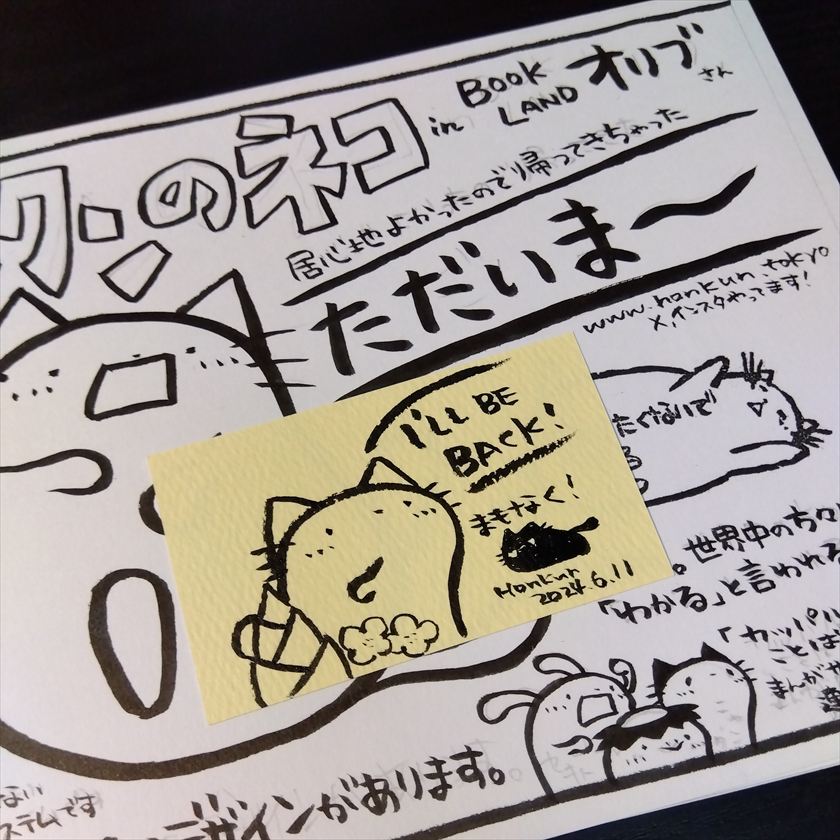 クンのネコ
in BOOK LAND オリブさん
居心地よかったので帰ってきちゃった
ただいま〜
www.honkun.tokyo
X,インスタやってます!
I'LL BE
BACK!
まもなく!
Honkun
2024.6.11
たくないで
。世界中の方々
「わかる」と言われる
「カッパル
ことば
まんが
ない
ステムです
デザインがあります。